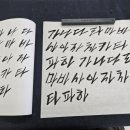 나 다
라 마 바
아 자
카 타
하
가나다라마바
사아자차카타
파하 가나다라
마바사아자차카
타파하